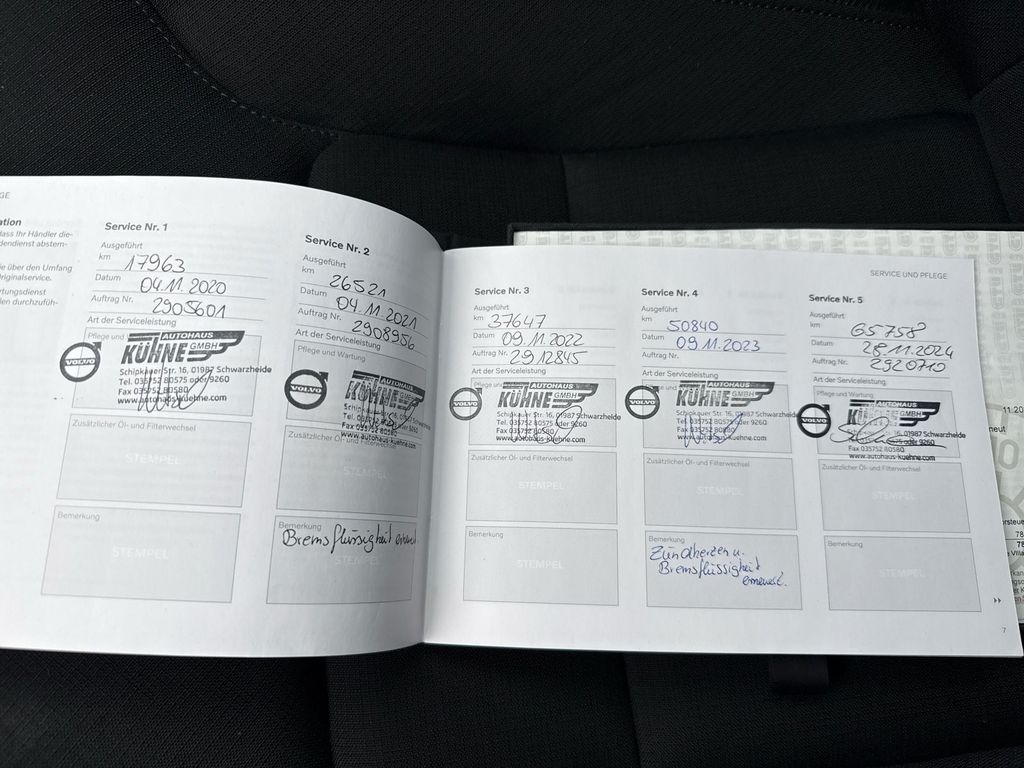 GE
ation
dass Ihr Händler die-
dendienst abstem-
ie über den Umfang
riginalservice.
rtungsdienst
len durchzufüh-
Service Nr. 1
Ausgeführt
km 17963
Datum 04.11.2020
Auftrag Nr. 2905601
Art der Serviceleistung
Pflege und
VOLVO
AUTOHAUS
KÜHNE GMBH
Schipkauer Str. 16, 01987 Schwarzheide
Tel. 035752 80575 oder 9260
Fax 035752 80580
www.autohaus-kuehne.com
Zusätzlicher Öl- und Filterwechsel
STEMPEL
Bemerkung
STEMPEL
Service Nr. 2
Ausgeführt
km 26521
Datum 04.11.2021
Auftrag Nr. 2908956
Art der Serviceleistung
Pflege und Wartung
VOLVO
AUTOHAUS
KÜHNE GMBH
Fax 035752 80580
www.autohaus-kuehne.com
Zusätzlicher Öl- und Filterwechsel
STEMPEL
Bemerkung
Bremsflüssigkeit erneuert.
STEMPEL
SERVICE UND PFLEGE
Service Nr. 3
Ausgeführt
km 37647
Datum 09.11.2022
Auftrag Nr. 2912845
Art der Serviceleistung
VOLVO
AUTOHAUS
KÜHNE GMBH
Schipkauer Str. 16, 01987 Schwarzheide
Tel. 035752 80575 oder 9260
Fax 035752 80580
www.autohaus-kuehne.com
Zusätzlicher Öl- und Filterwechsel
STEMPEL
Bemerkung
STEMPEL
Service Nr. 4
Ausgeführt
km 50840
Datum 09.11.2023
Auftrag Nr.
Art der Serviceleistung
VOLVO
AUTOHAUS
KÜHNE GMBH
Schipkauer Str. 16, 01987 Schwarzheide
Tel. 035752 80575 oder 9260
Fax 035752 80580
www.autohaus-kuehne.com
Zusätzlicher Öl- und Filterwechsel
STEMPEL
Bemerkung
Zündkerzen u.
Bremsflüssigkeit
erneuert.
Service Nr. 5
Ausgeführt
km 65758
Datum 28.11.2024
Auftrag Nr. 2920710
Art der Serviceleistung
Pflege und Wartung
VOLVO
AUTOHAUS
KÜHNE GMBH
16, 01987 Schwarzheide
oder 9260
Fax 035752 80580
www.autohaus-kuehne.com
Zusätzlicher Öl- und Filterwechsel
STEMPEL
Bemerkung
STEMPEL
7